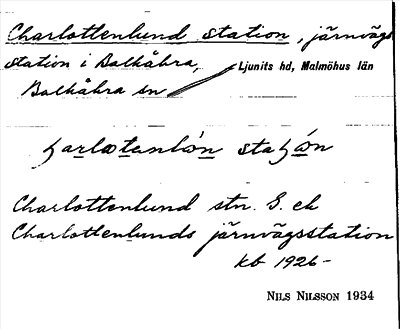 Charlottenlund station, järnvägs
station i Balkåkra, Ljunits hd, Malmöhus län
Balkåkra sn
Charlottenlund stn. G. ek
Charlottenlunds järnvägsstation
kb 1926-
NILS NILSSON 1934